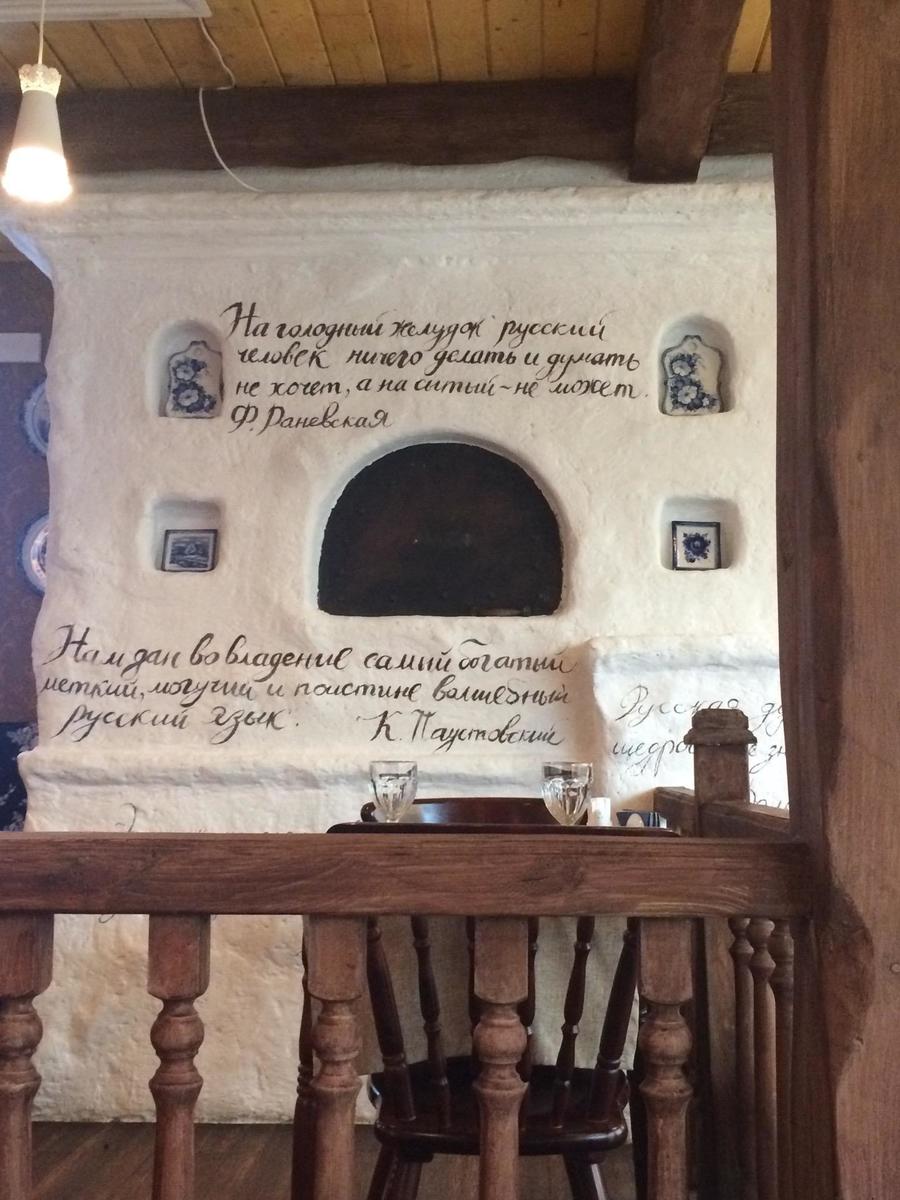 На голодный желудок русский
человек ничего делать и думать
не хочет, а на сытый - не может.
Ф. Раневская
Нам дан во владение самый богатый
меткий, могучий и поистине волшебный
русский язык.
К. Паустовский
Русская